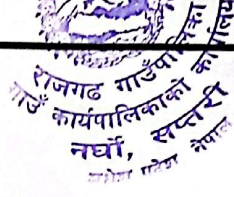 राजगढ गाउँपालिका
गाउँ कार्यपालिकाको कार्यालय
नर्घो, सप्तरी
मधेश प्रदेश नेपाल